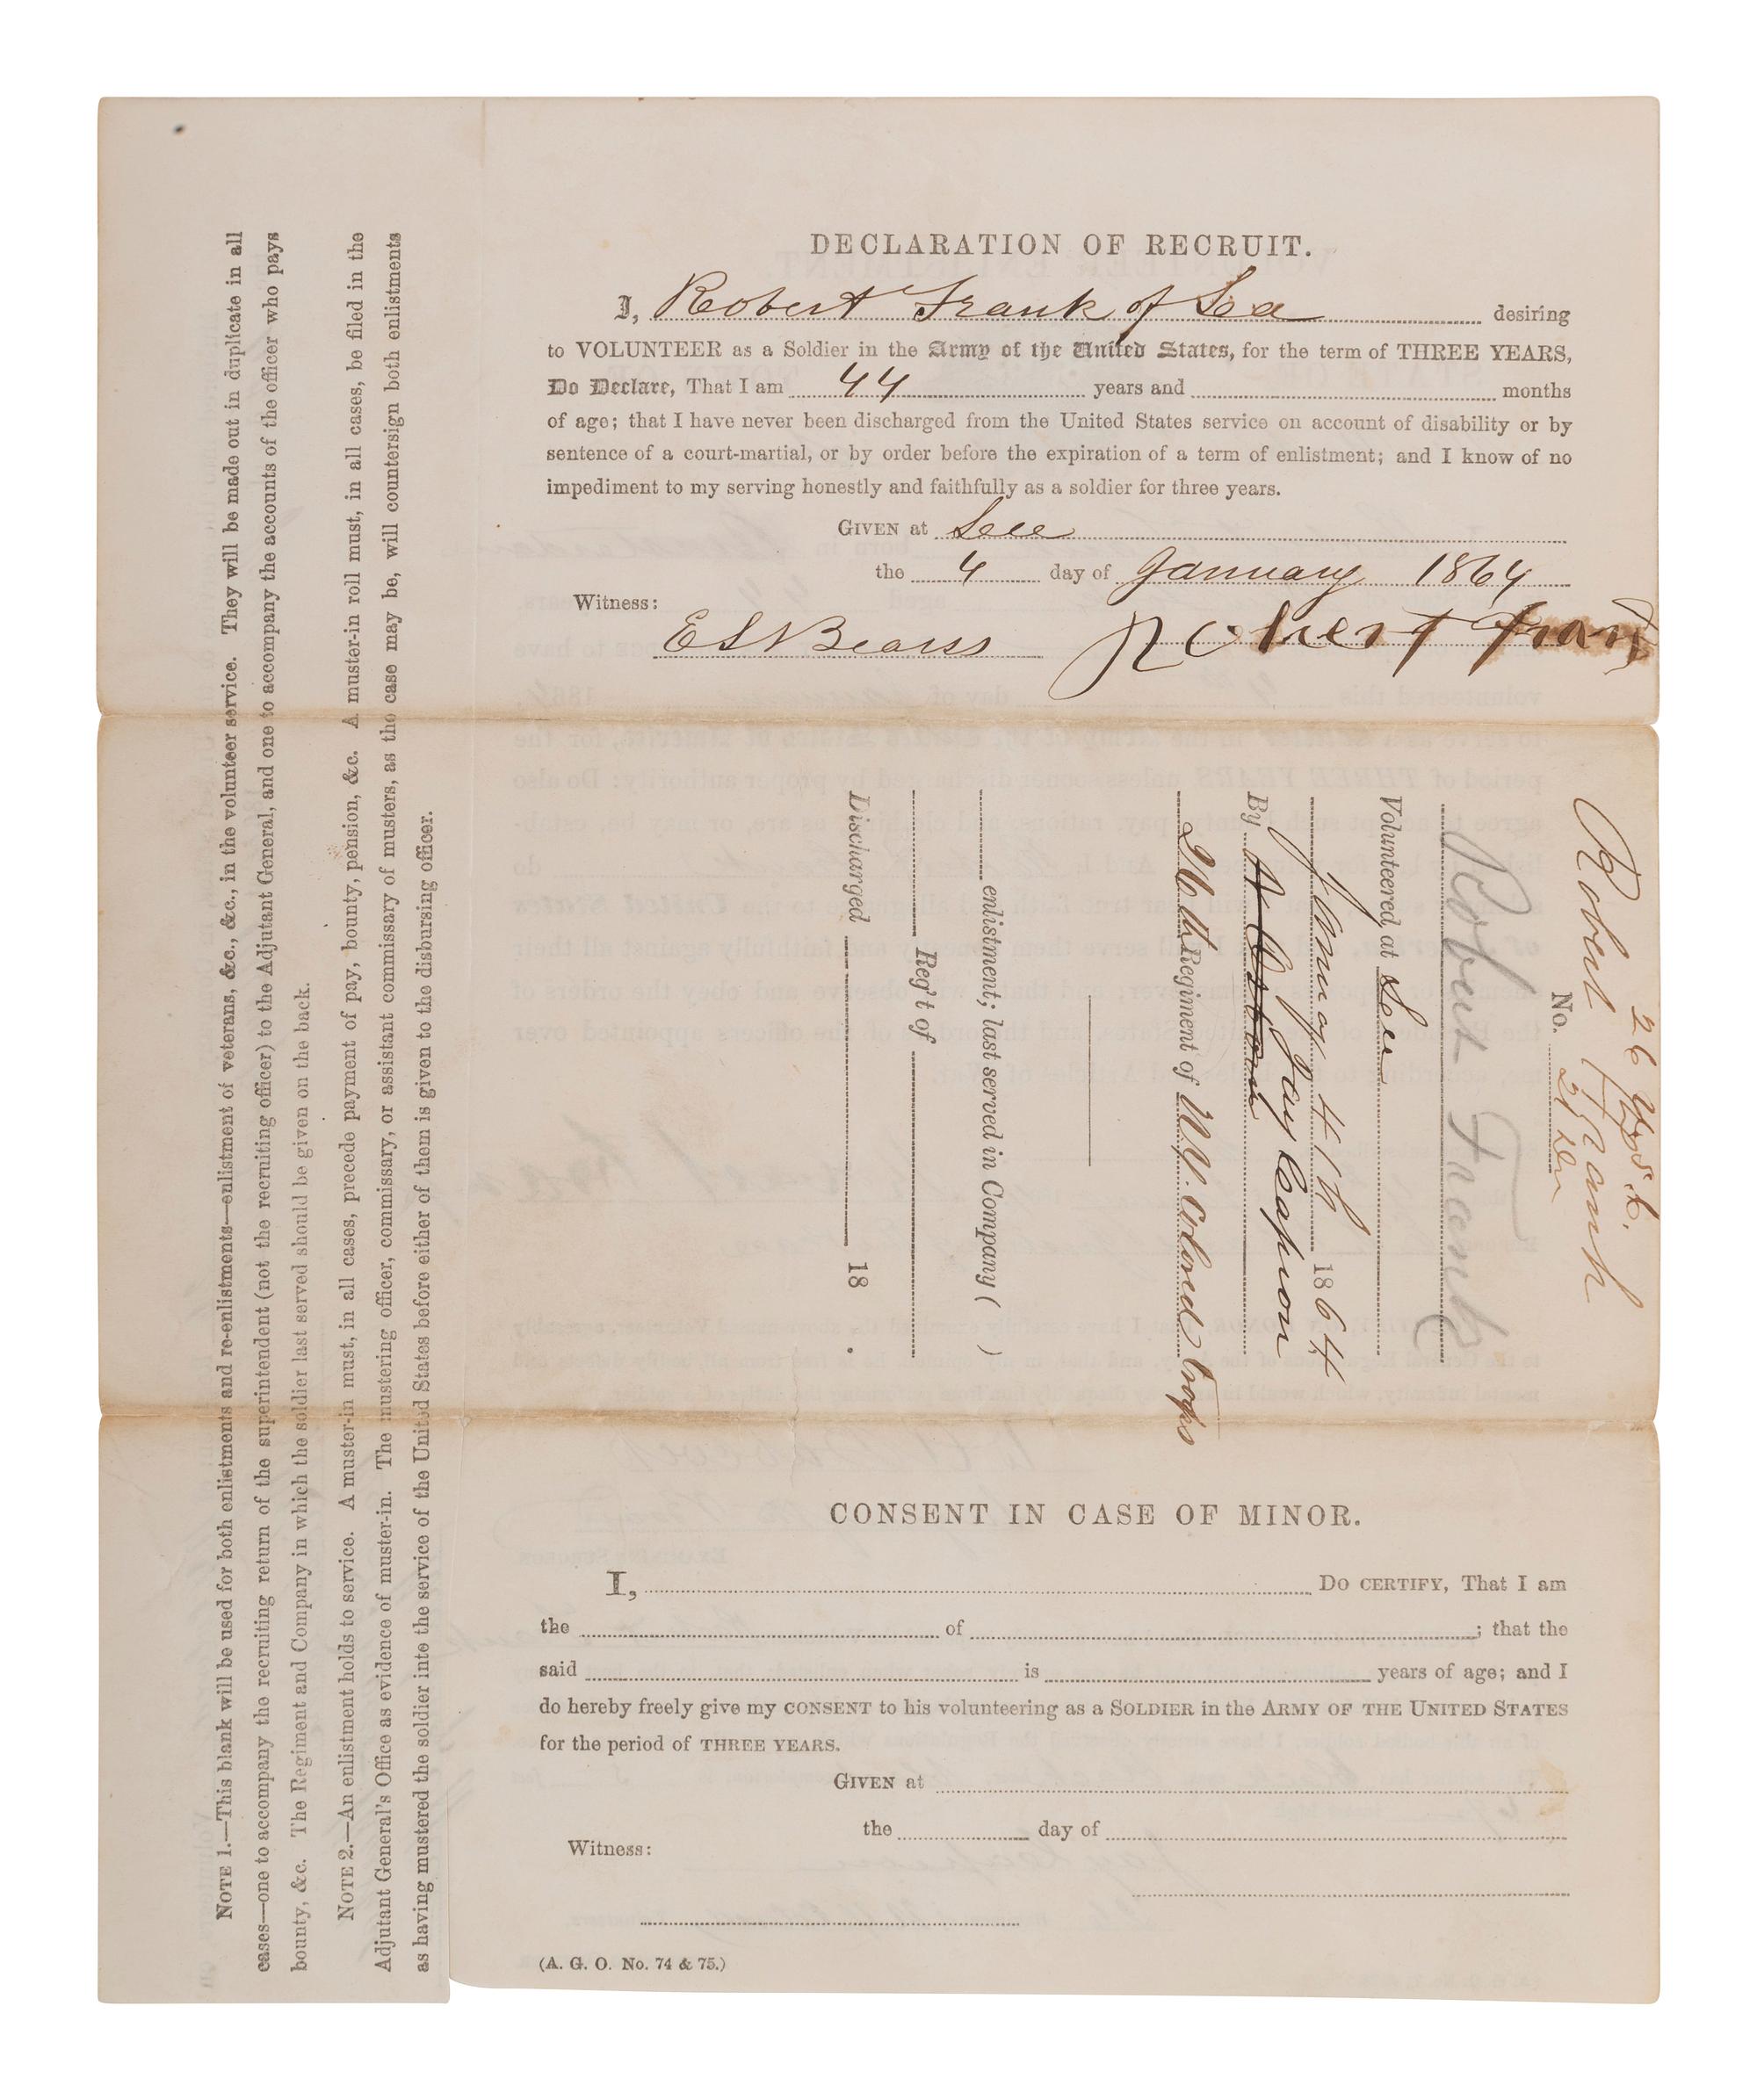 DECLARATION OF RECRUIT.
I, Robert Frank of Lee desiring
to VOLUNTEER as a Soldier in the Army of the United States, for the term of THREE YEARS,
Do Declare, That I am 44 years and months
of age; that I have never been discharged from the United States service on account of disability or by
sentence of a court-martial, or by order before the expiration of a term of enlistment; and I know of no
impediment to my serving honestly and faithfully as a soldier for three years.
GIVEN at Lee
the 4 day of January 1864
Witness:
E S Bearss Robert Frank
26 U.S.
Robert Frank
No.
Robert Frank
Volunteered at Lee
January 4th 1864
By Jay Capron
26th Regiment of N.Y. Colored troops
enlistment; last served in Company ( )
Reg't of
Discharged 18 .
CONSENT IN CASE OF MINOR.
I, DO CERTIFY, That I am
the of ; that the
said is years of age; and I
do hereby freely give my CONSENT to his volunteering as a SOLDIER in the ARMY OF THE UNITED STATES
for the period of THREE YEARS.
GIVEN at
the day of
Witness:
(A. G. O. No. 74 & 75.)
NOTE 1.—This blank will be used for both enlistments and re-enlistments—enlistment of veterans, &c., &c., in the volunteer service. They will be made out in duplicate in all
cases—one to accompany the recruiting return of the superintendent (not the recruiting officer) to the Adjutant General, and one to accompany the accounts of the officer who pays
bounty, &c. The Regiment and Company in which the soldier last served should be given on the back.
NOTE 2.—An enlistment holds to service. A muster-in must, in all cases, precede payment of pay, bounty, pension, &c. A muster-in roll must, in all cases, be filed in the
Adjutant General's Office as evidence of muster-in. The mustering officer, commissary, or assistant commissary of musters, as the case may be, will countersign both enlistments
as having mustered the soldier into the service of the United States before either of them is given to the disbursing officer.